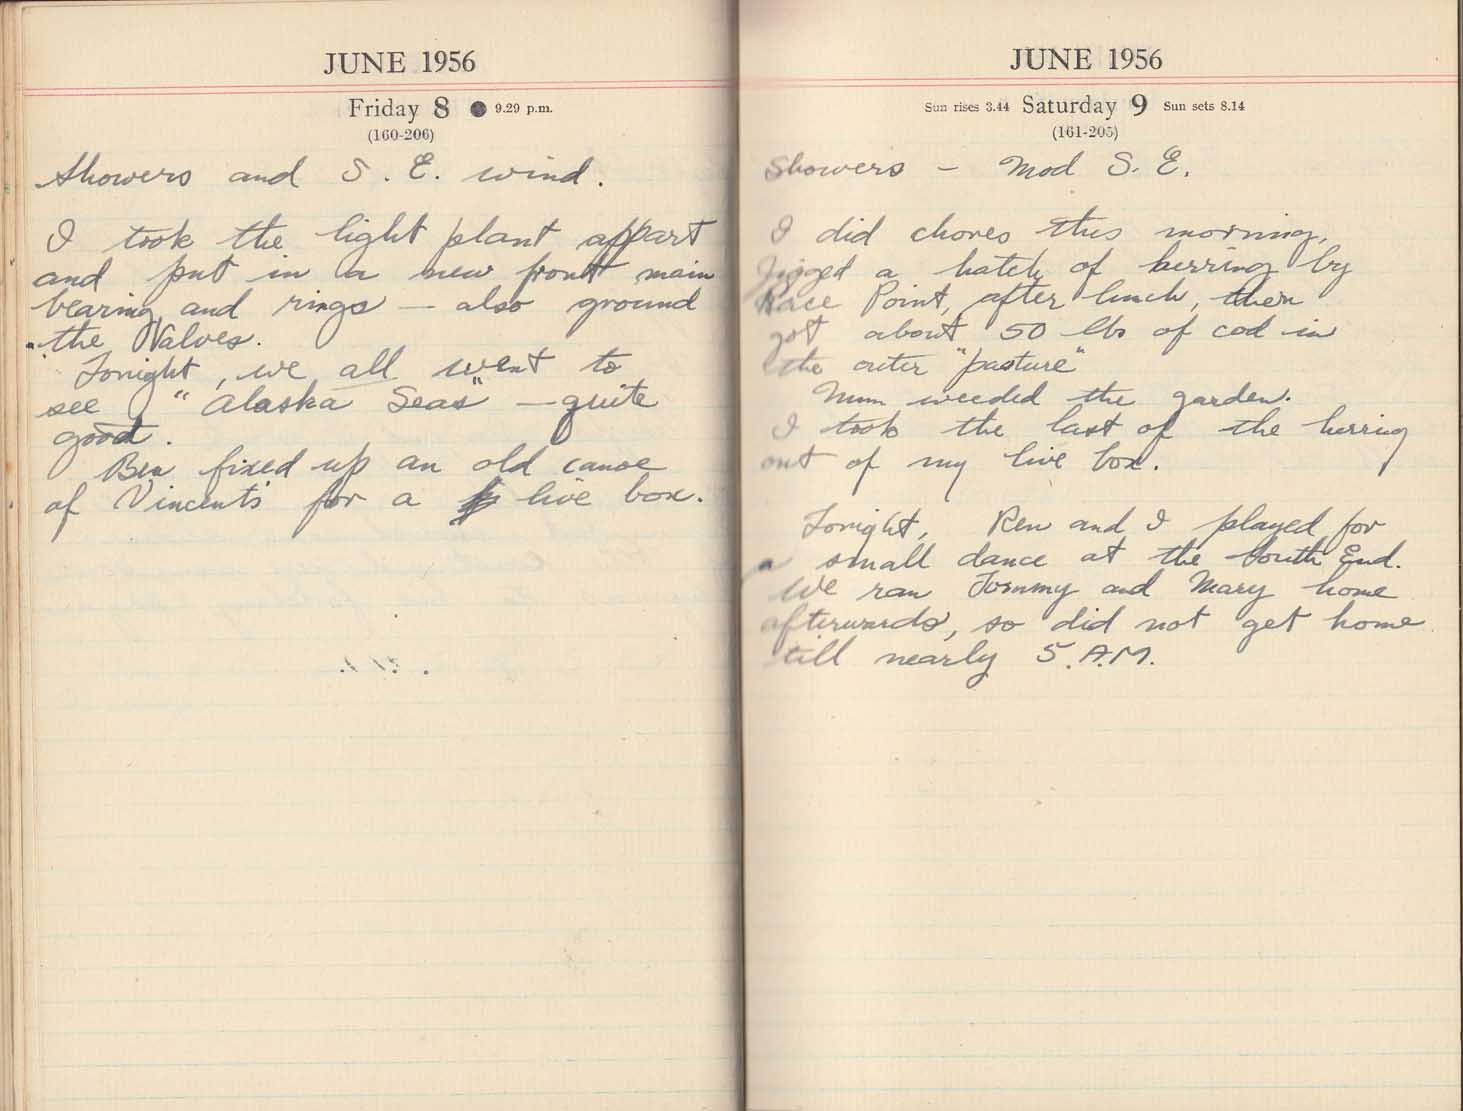 JUNE 1956
Friday 8 ● 9.29 p.m.
(160-206)
Showers and S. E. wind.
I took the light plant appart
and put in a new front main
bearing and rings — also ground
the Valves.
Tonight, we all went to
see "Alaska Seas" — quite
good.
Ben fixed up an old canoe
of Vincents for a live box.
JUNE 1956
Sun rises 3.44 Saturday 9 Sun sets 8.14
(161-205)
Showers – Mod S. E.
I did chores this morning,
Jigged a hatch of herring by
Race Point, after lunch, then
got about 50 lbs of cod in
the outer "pasture"
Mum weeded the garden.
I took the last of the herring
out of my live box.
Tonight, Ren and I played for
a small dance at the South End.
We ran Tommy and Mary home
afterwards, so did not get home
till nearly 5 A.M.